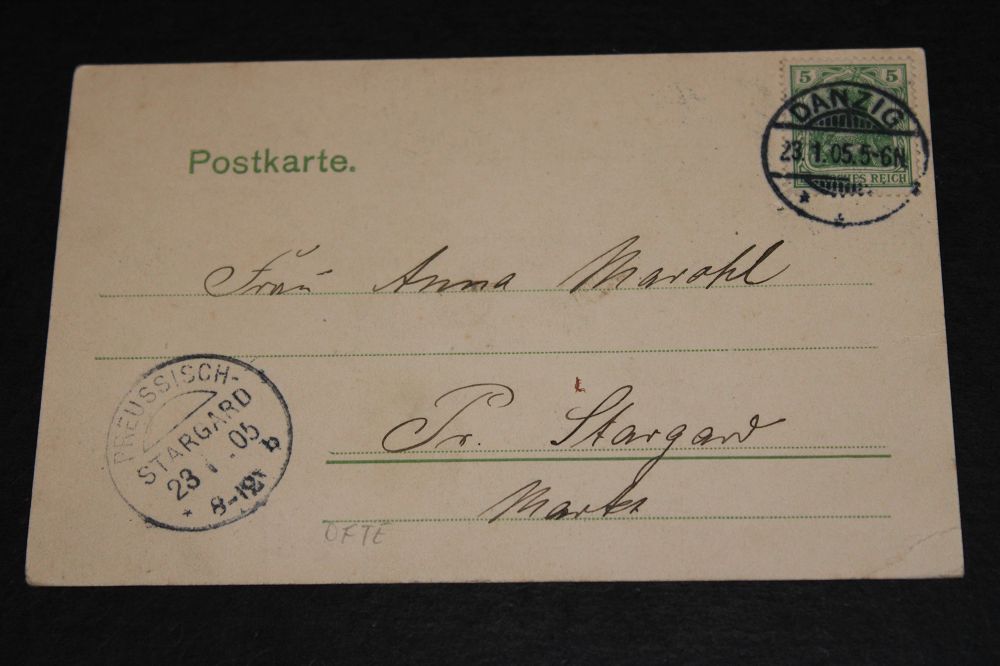 5 5
DANZIG
23.1.05.5-6N
DEUTSCHES REICH
Postkarte.
Frau Anna Marohl
Pr. Stargard
Markt
PREUSSISCH-
STARGARD
23 1 05
b
OFTE